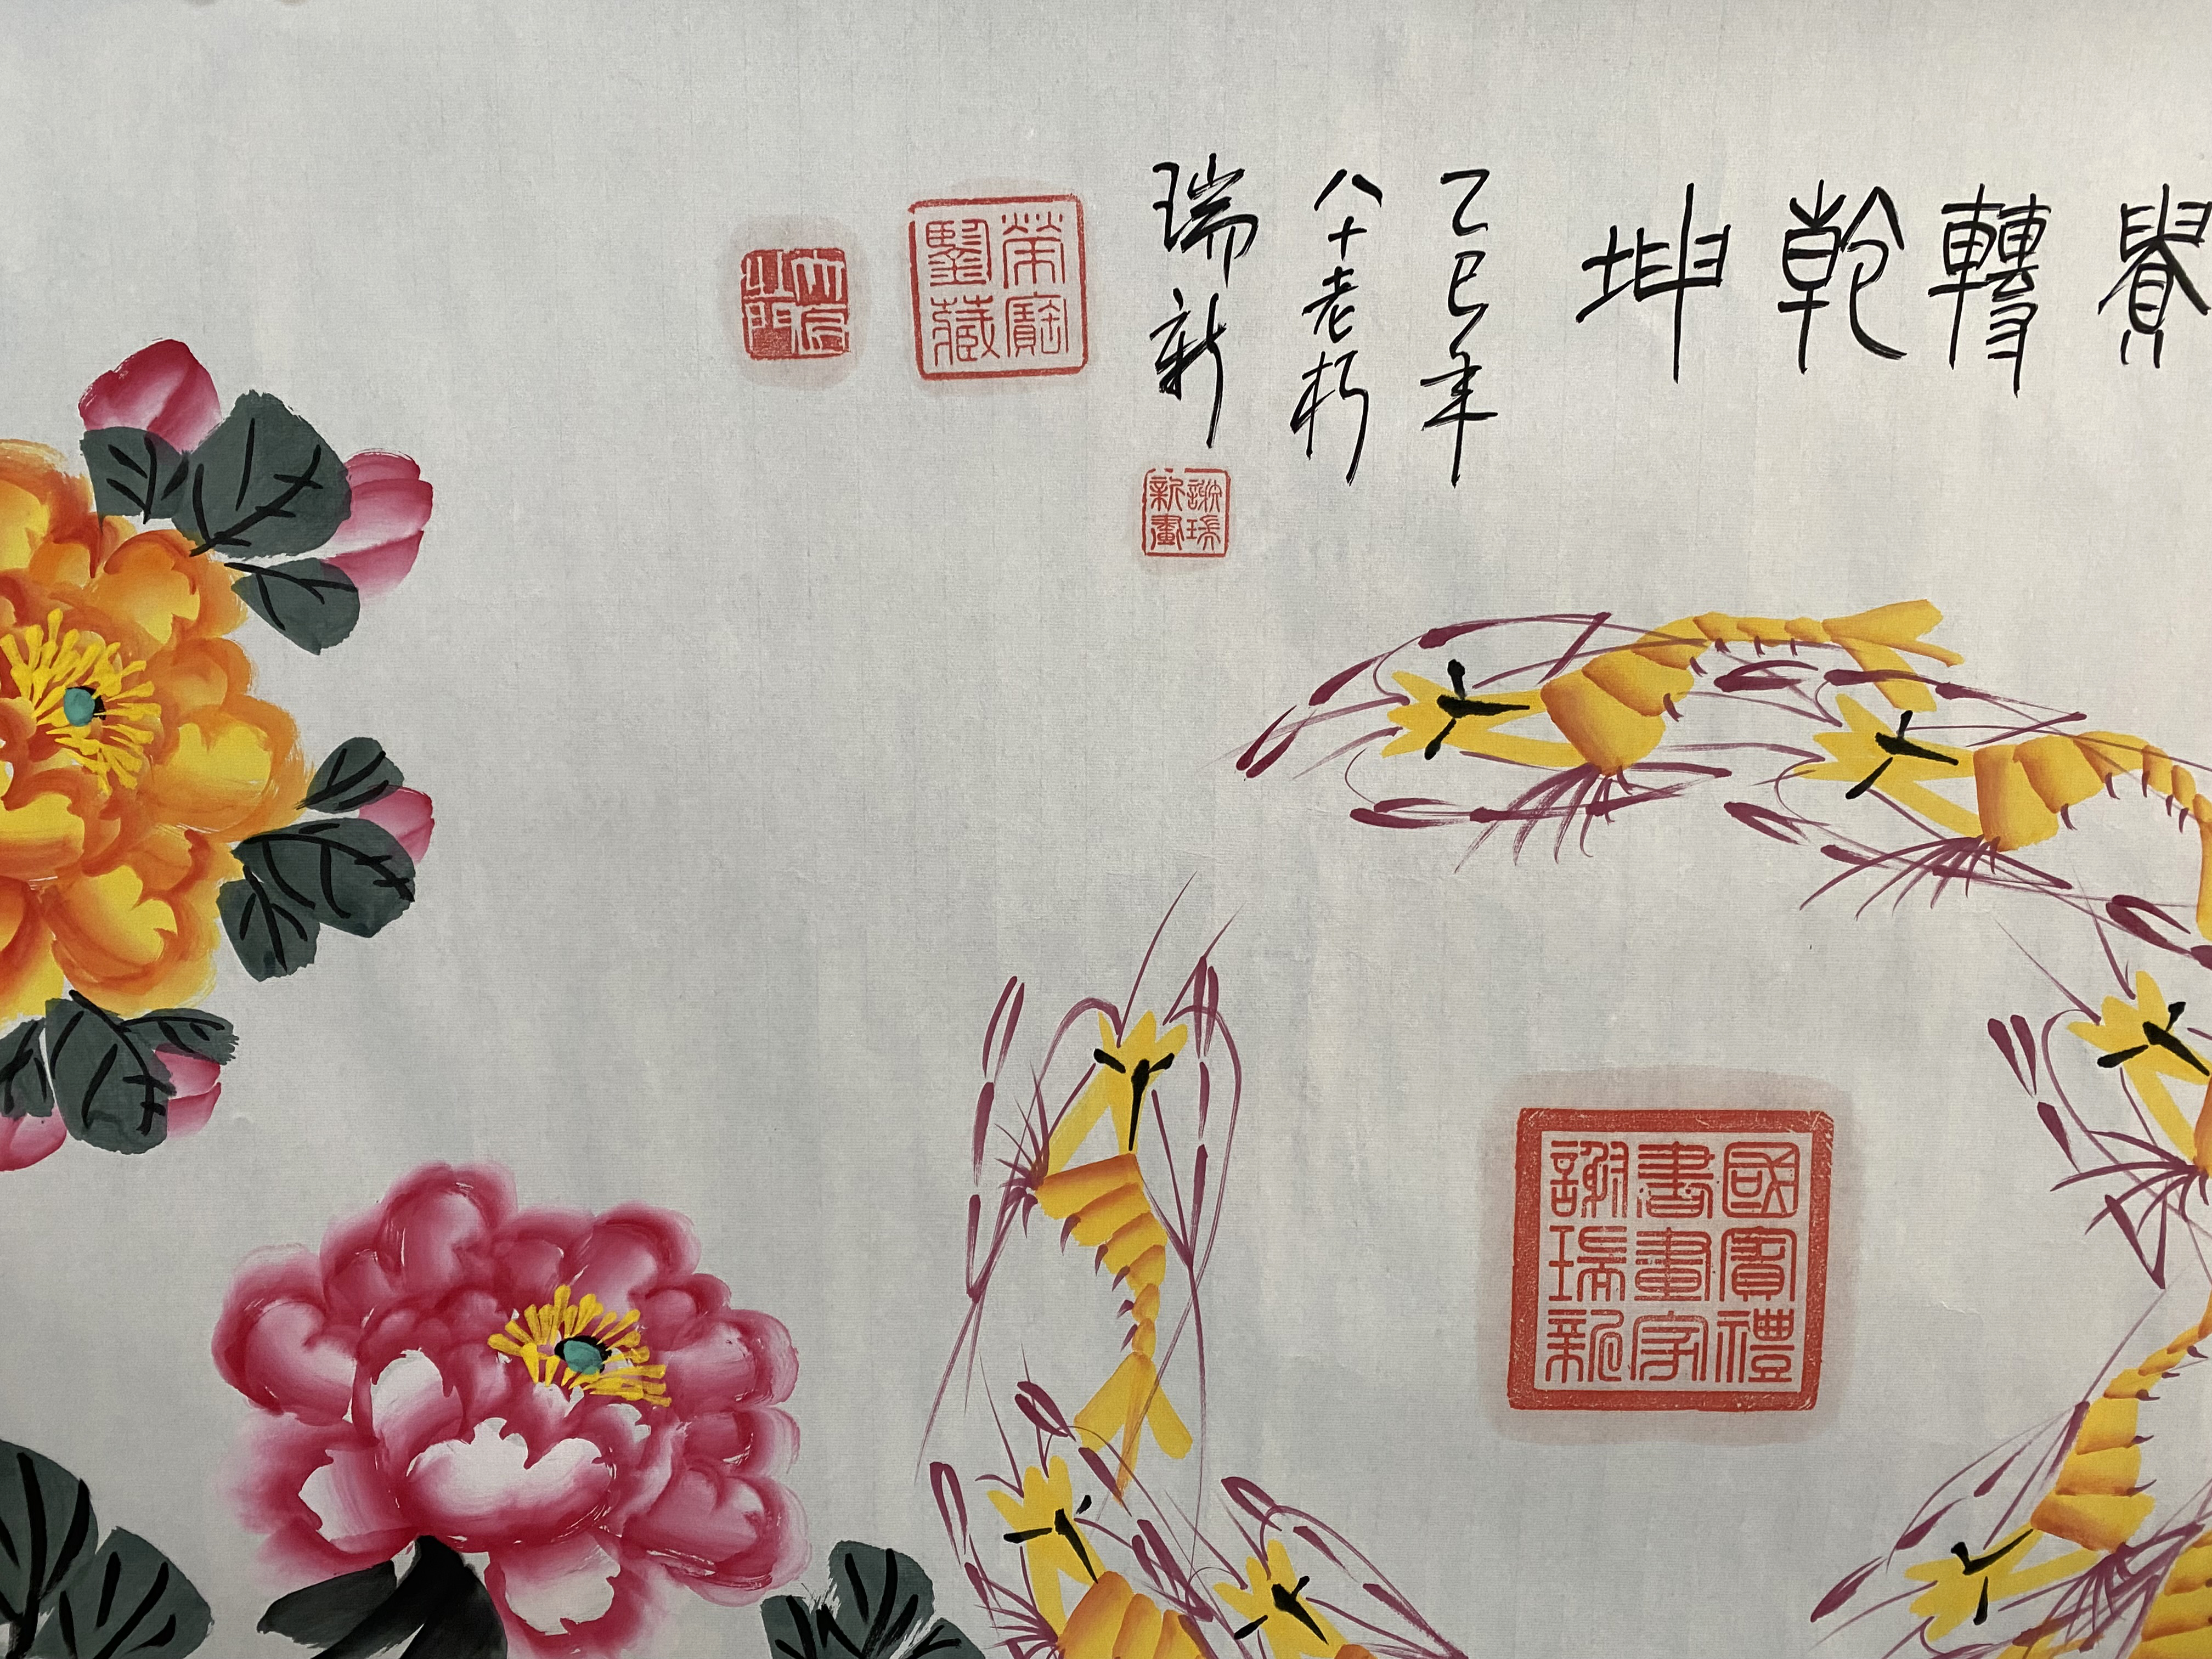 轉乾坤
乙巳年
八十老朽
瑞新
謝瑞
新畫
榮寶
鑒藏
國寳禮
書畫字
謝瑞新